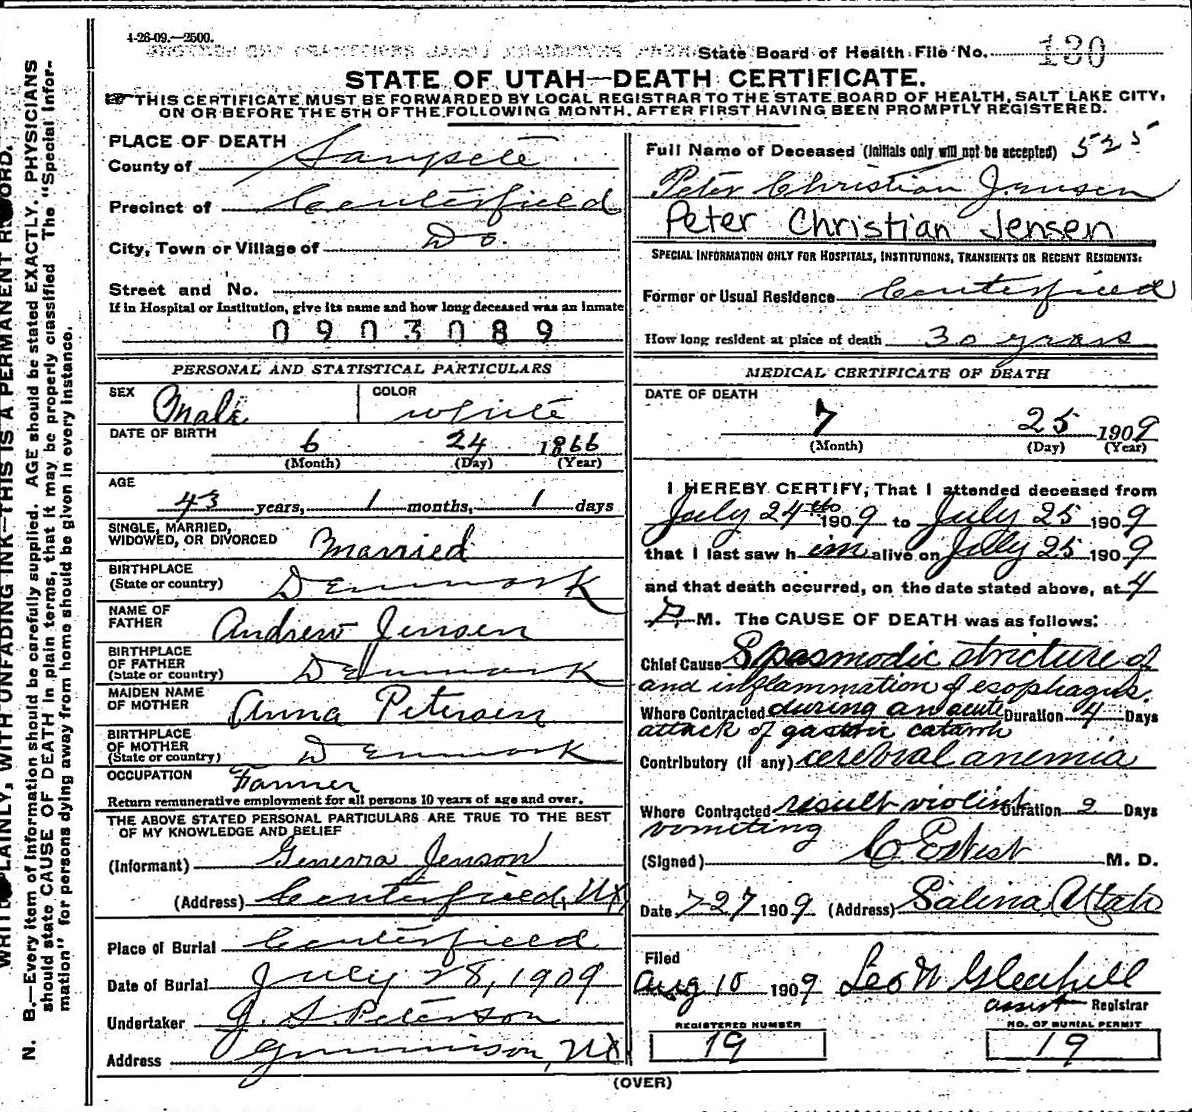 4-26-09.—2500.
State Board of Health File No. 130
STATE OF UTAH—DEATH CERTIFICATE.
THIS CERTIFICATE MUST BE FORWARDED BY LOCAL REGISTRAR TO THE STATE BOARD OF HEALTH, SALT LAKE CITY,
ON OR BEFORE THE 5TH OF THE FOLLOWING MONTH, AFTER FIRST HAVING BEEN PROMPTLY REGISTERED.
PLACE OF DEATH
County of Sanpete
Precinct of Centerfield
City, Town or Village of Do.
Street and No.
If in Hospital or Institution, give its name and how long deceased was an inmate
0903089
PERSONAL AND STATISTICAL PARTICULARS
SEX Male COLOR white
DATE OF BIRTH 6 24 1866
(Month) (Day) (Year)
AGE
43 years, 1 months, 1 days
SINGLE, MARRIED,
WIDOWED, OR DIVORCED Married
BIRTHPLACE
(State or country) Denmark
NAME OF
FATHER Andrew Jensen
BIRTHPLACE
OF FATHER
(State or country) Denmark
MAIDEN NAME
OF MOTHER Anna Petersen
BIRTHPLACE
OF MOTHER
(State or country) Denmark
OCCUPATION Farmer
Return remunerative employment for all persons 10 years of age and over.
THE ABOVE STATED PERSONAL PARTICULARS ARE TRUE TO THE BEST
OF MY KNOWLEDGE AND BELIEF
(Informant) Genevra Jenson
(Address) Centerfield, Ut
Place of Burial Centerfield
Date of Burial July 28, 1909
Undertaker J. S. Peterson
Address Gunnison, Ut
Full Name of Deceased (Initials only will not be accepted) 525
Peter Christian Jensen
Peter Christian Jensen
SPECIAL INFORMATION ONLY FOR HOSPITALS, INSTITUTIONS, TRANSIENTS OR RECENT RESIDENTS:
Former or Usual Residence Centerfield
How long resident at place of death 30 years
MEDICAL CERTIFICATE OF DEATH
DATE OF DEATH
7 25 1909
(Month) (Day) (Year)
I HEREBY CERTIFY, That I attended deceased from
July 24th 1909 to July 25 1909
that I last saw him alive on July 25 1909
and that death occurred, on the date stated above, at 4
P. M. The CAUSE OF DEATH was as follows:
Chief Cause Spasmodic stricture of
and inflammation of esophagus.
Where Contracted during an acute Duration 4 Days
attack of gastric catarrh
Contributory (if any) cerebral anemia
Where Contracted result violent Duration 2 Days
vomiting
(Signed) M. D.
Date 7 27 1909 (Address) Salina Utah
Filed
Aug 10 1909 Leo N Gledhill
assist Registrar
REGISTERED NUMBER NO. OF BURIAL PERMIT
19 19
(OVER)
WRITE PLAINLY, WITH UNFADING INK—THIS IS A PERMANENT RECORD.
N. B.—Every item of information should be carefully supplied. AGE should be stated EXACTLY. PHYSICIANS
should state CAUSE OF DEATH in plain terms, that it may be properly classified The "Special Infor-
mation" for persons dying away from home should be given in every instance.